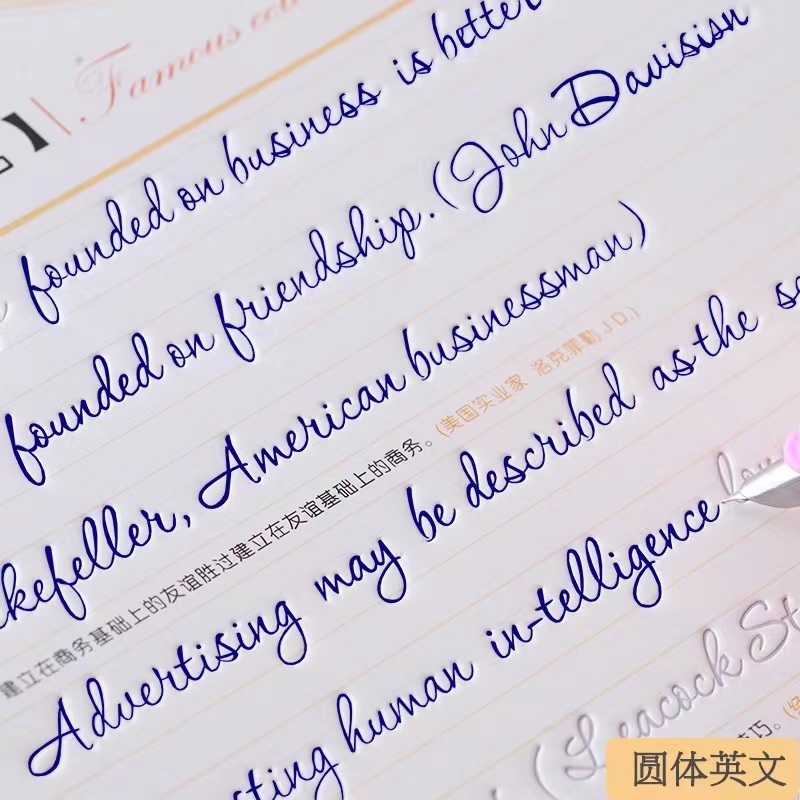 】| Famous
founded on business is better
founded on friendship. (John Davisisn
kefeller, American businessman)
建立在商务基础上的友谊胜过建立在友谊基础上的商务。(美国实业家 洛克菲勒 J D.)
Advertising may be described as the sc
sting human in-telligence lon
(Leacock St
技巧。(经
圆体英文